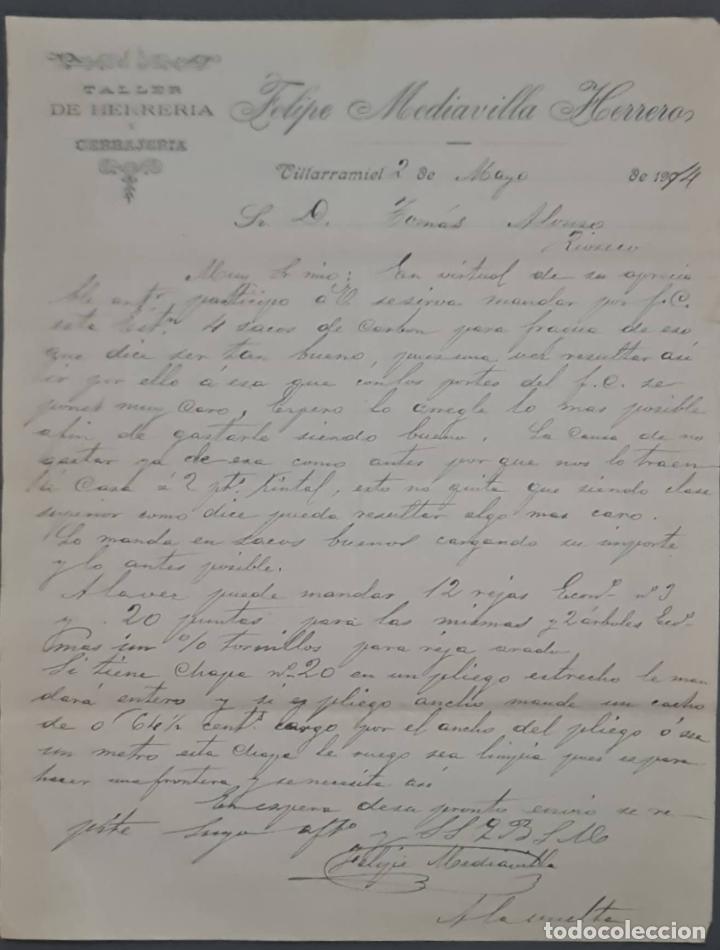 TALLER
DE HERRERIA
Y
CERRAJERIA
Felipe Mediavilla Herreros
Villarramiel 2 de Mayo de 1914
Sr. D. Tomás Alonso
Rioseco
Muy Sr mio; En virtual de su aprecia
ble antr participo á V reserva mandar por f.C.
esta Estn 4 sacos de Carbon para fragua de eso
que dice ser tan bueno, pues una vez resultar así
ir por ello á esa que con los portes del f.C. se
pone muy Caro, Espero lo arregle lo mas posible
afin de gastarlo siendo bueno. La Causa de no
gastar ya de esa como antes por que nos lo traen
á Casa á 2 pts Kintal, esto no quita que siendo clase
superior como dice pueda resultar algo mas caro.
Lo manda en sacos buenos cargando su importe
y lo antes posible.
A la vez puede mandar 12 rejas Econs nº 3
y 20 puntas para las mismas y 2 árboles Ecos
mas un % tornillos para reja arado
Si tiene Chapa nº 20 en un pliego estrecho le man
dará entero y si es pliego ancho mande un cacho
de 0 64½ cents largo por el ancho del pliego ó sea
un metro esta Chapa le ruego sea limpia pues es para
hacer una frontera y se necesita así
En espera de su pronto envio se re
pite suyo affo y S S Q B S M
Felipe Mediavilla
A la vuelta
todocoleccion
todocoleccion.net